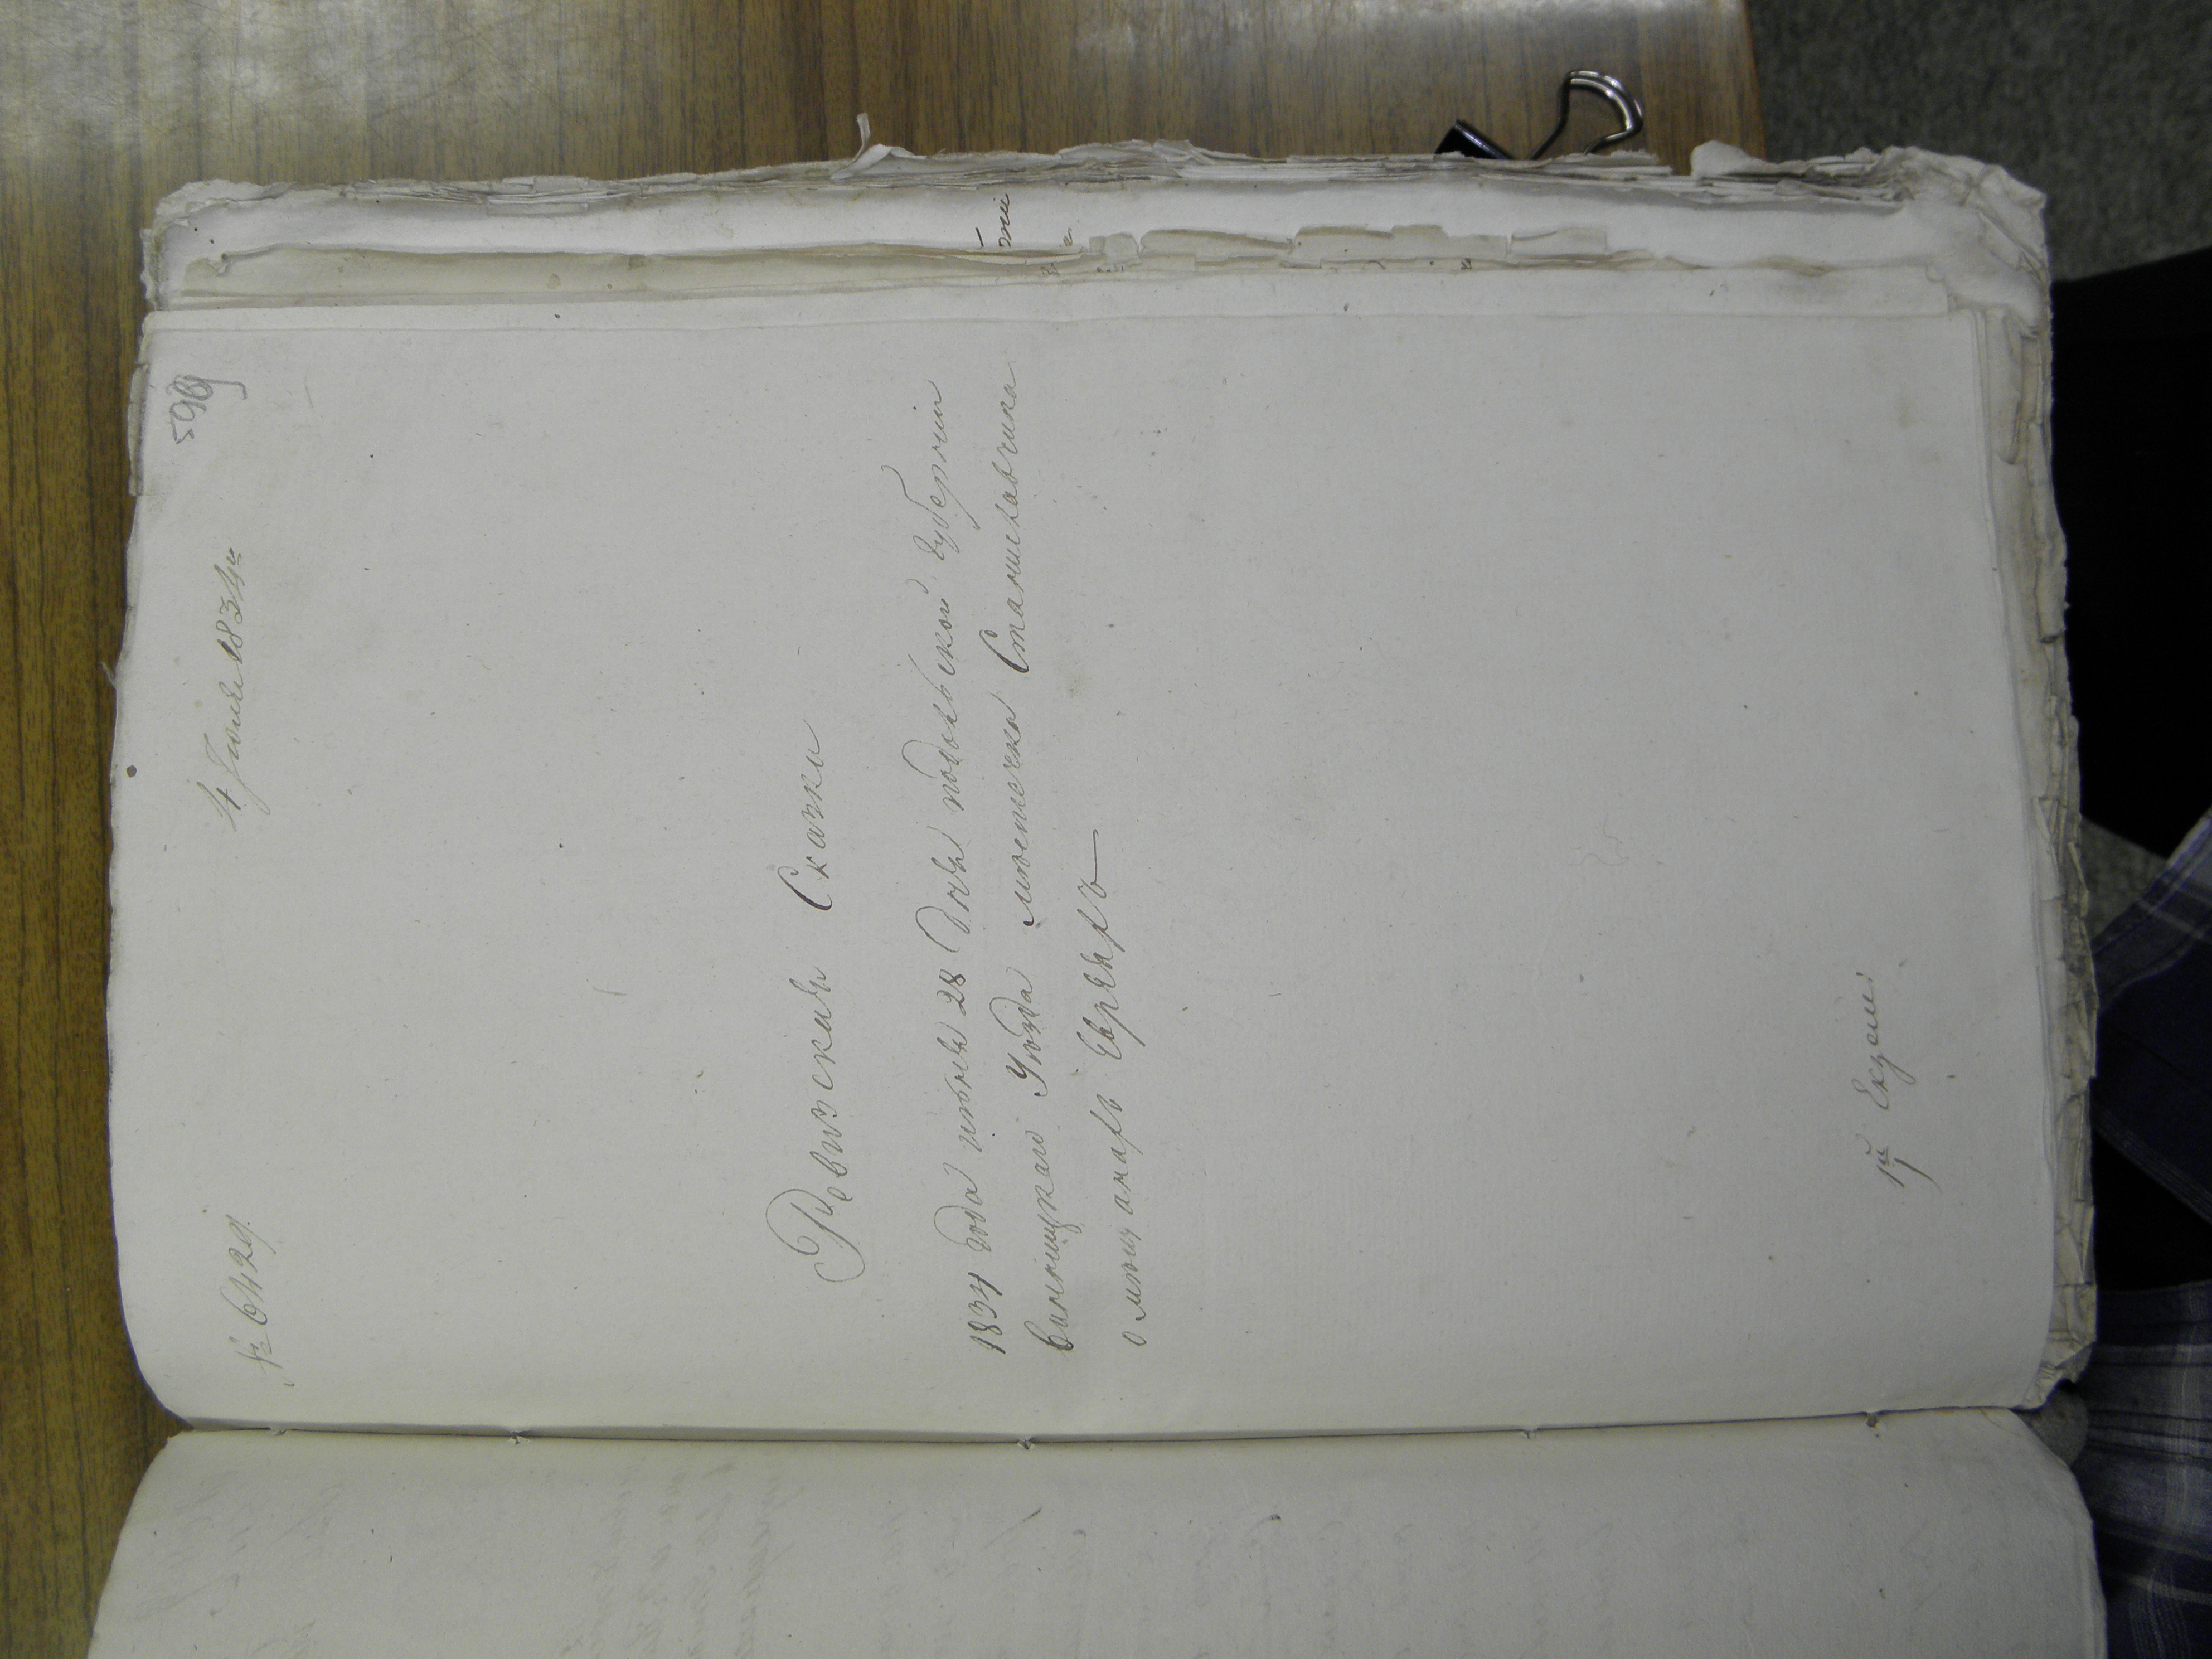 № 6429.
4 Июля 1834 го
599
Ревизская Сказка
1834 года июня 28 дня подольской губерніи
винницкаго Уѣзда мѣстечка Станиславчика
о мѣщанахъ Евреяхъ
1й Екзем: